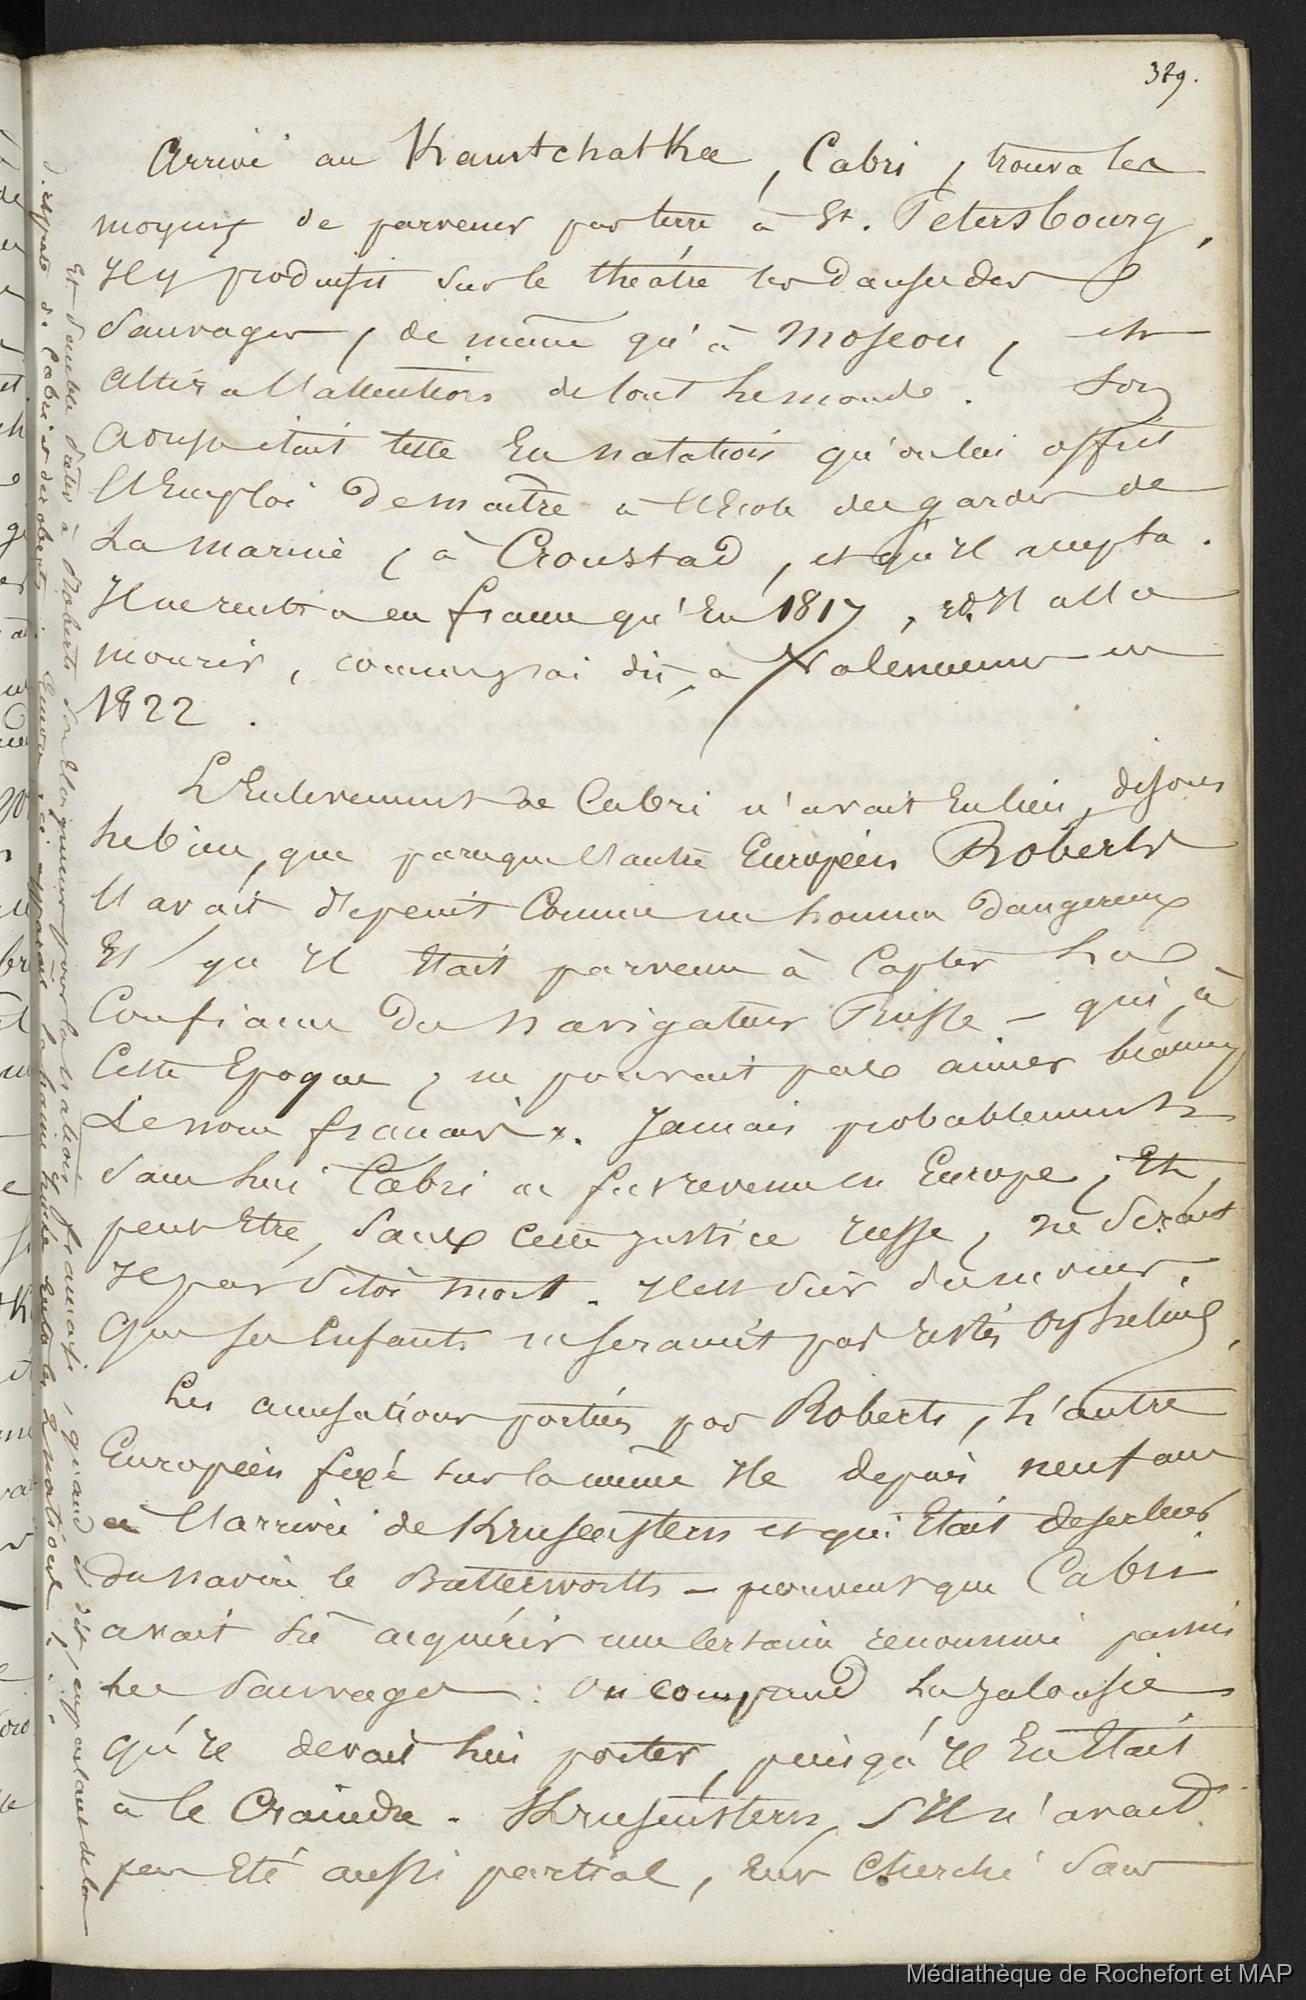 329.
Arrivé au Kamtchatka, Cabri, trouva les
moyens de parvenir par terre à St. Petersbourg,
Il y produisit sur le théâtre les danses des
Sauvages, de même qu'à Moscou, et
attira l'attention de tout le monde. Son
adresse était telle En natation qu'on lui offrit
l'Emploi de maître à l'Ecole des gardes de
la marine, à Cronstad, et qu'Il accepta.
Il ne rentra en france qu'En 1817, et Il alla
mourir, comme je l'ai dit, à Valenciennes en
1822.
L'Enlevement de Cabri n'avait Eu lieu, disons
le bien, que parce que l'autre Européen Roberts
l'avait dépeint Comme un homme dangereux
Et qu'Il Etait parvenu à Capter la
Confiance du navigateur Russe — qui, à
Cette Epoque, ne pouvait pas aimer beaucoup
le nom français. Jamais probablement
sans lui Cabri ne fut revenu en Europe, Et
peut Etre, sans cette justice russe, ne serait
Il pas sitôt mort. Il est sûr du moins,
Que ses Enfants ne seraient pas restés orphelins.
Les accusations portées par Roberts, l'autre
Européen fixé sur la même Ile depuis neuf ans
à l'arrivée de Krusenstern et qui Etait deserteur
du navire le Butterworth — prouvent que Cabri
avait sû acquérir une certaine renommée parmi
les Sauvages. On comprend la jalousie
qu'Il devait lui porter, puisqu'Il En Etait
à le Craindre. Krusenstern, S'Il n'avait
pas Eté aussi partial, Eut cherché dans
Et semble dater à Roberts son Eloignement pour la nation française, quand Il dit en parlant de la
dispute de Cabri et de Roberts : Encore, ici apparait la haine innée entre les 2 nations !
Médiathèque de Rochefort et MAP